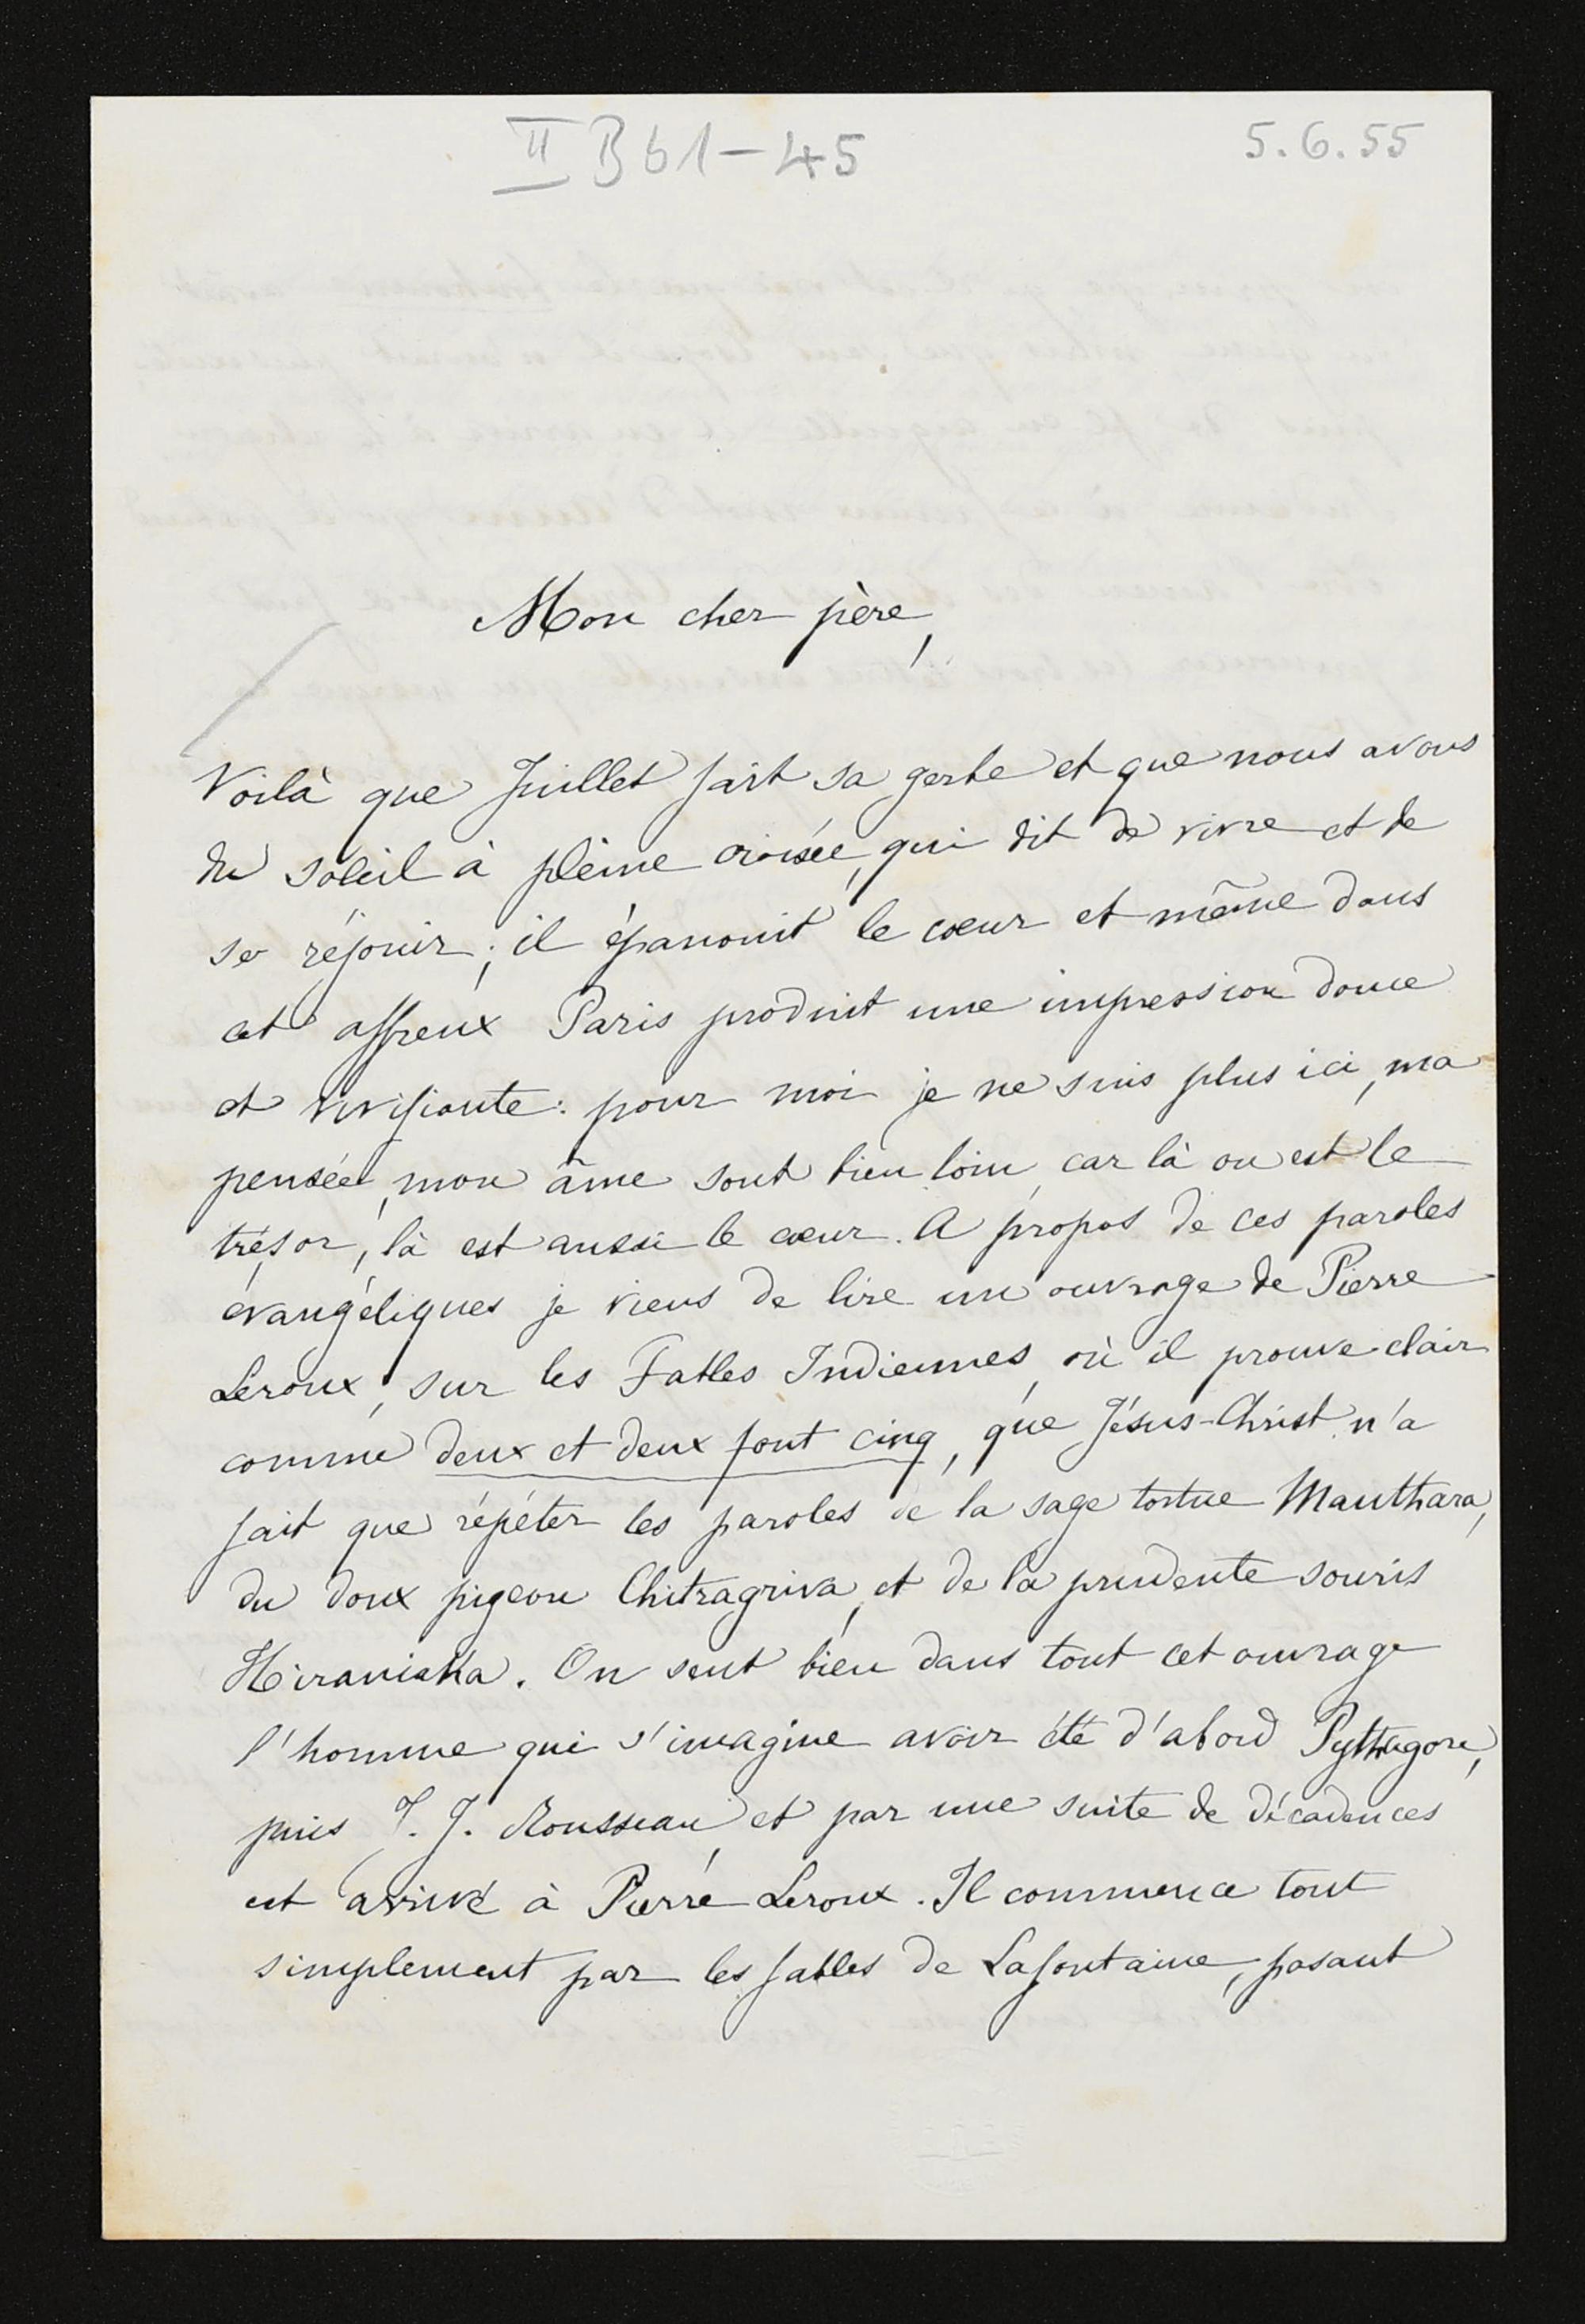 II B 61-45
5.6.55
Mon cher père,
Voilà que Juillet fait sa gerbe et que nous avons
du soleil à pleine croisée, qui dit de vivre et de
se réjouir; il épanouit le cœur et même dans
cet affreux Paris produit une impression douce
et vivifiante: pour moi je ne suis plus ici, ma
pensée, mon âme sont bien loin, car là ou est le
trésor, là est aussi le cœur. A propos de ces paroles
évangéliques je viens de lire un ouvrage de Pierre
Leroux, sur les Fables Indiennes, où il prouve clair
comme deux et deux font cinq, que Jésus-Christ n'a
fait que répéter les paroles de la sage tortue Manthara,
du doux pigeon Chitragriva, et de la prudente souris
Hiraniaka. On sent bien dans tout cet ouvrage
l'homme qui s'imagine avoir été d'abord Pythagore,
puis J. J. Rousseau, et par une suite de décadences
est arrivé à Pierre Leroux. Il commence tout
simplement par les fables de Lafontaine, posant